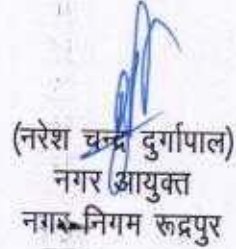 (नरेश चन्द्र दुर्गापाल)
नगर आयुक्त
नगर निगम रूद्रपुर